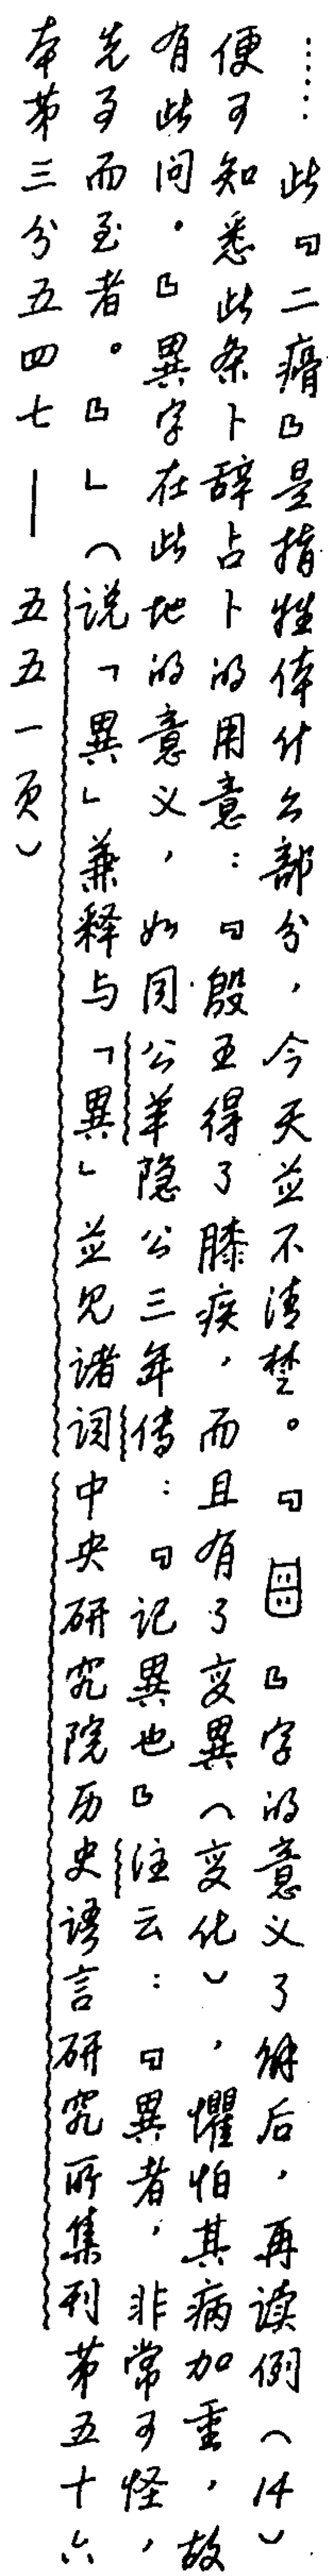 ……此『二𤺊』是指牲体什么部分，今天並不清楚。『𡇒』字的意义了解后，再读例（14）
便可知悉此条卜辞占卜的用意：『殷王得了膝疾，而且有了变異（变化），懼怕其病加重，故
有此问。』異字在此地的意义，如同公羊隐公三年传：『记異也』注云：『異者，非常可怪，
先事而至者。』」（说「異」兼释与「異」並见诸词中央研究院历史语言研究所集刊第五十六
本第三分五四七——五五一页）